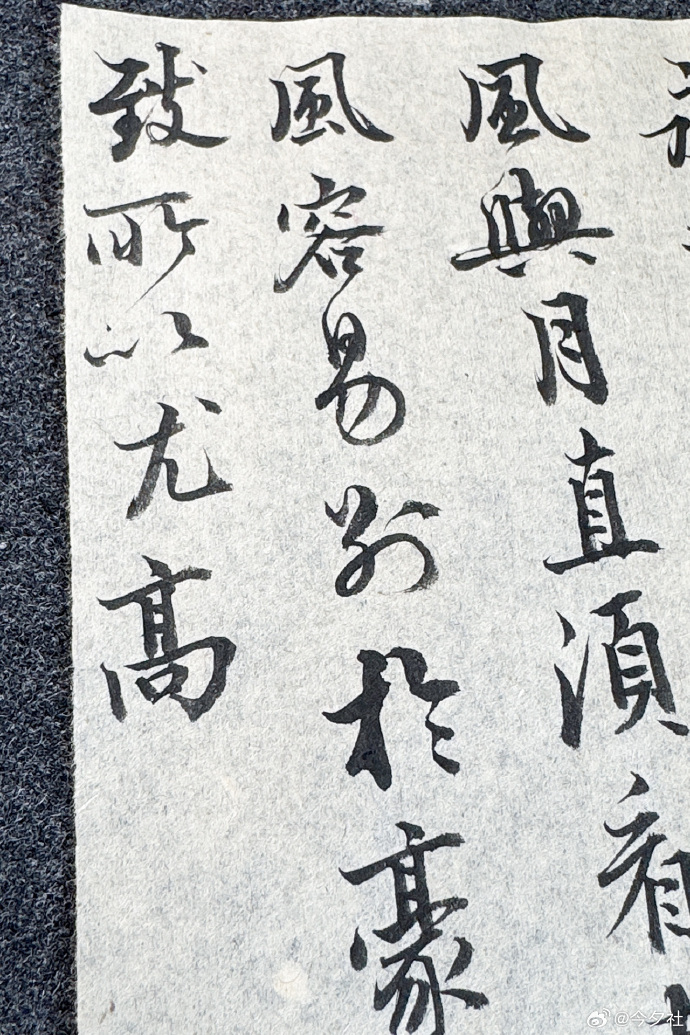 風與月直須看
風容易別於豪
致所以尤高
@今夕社